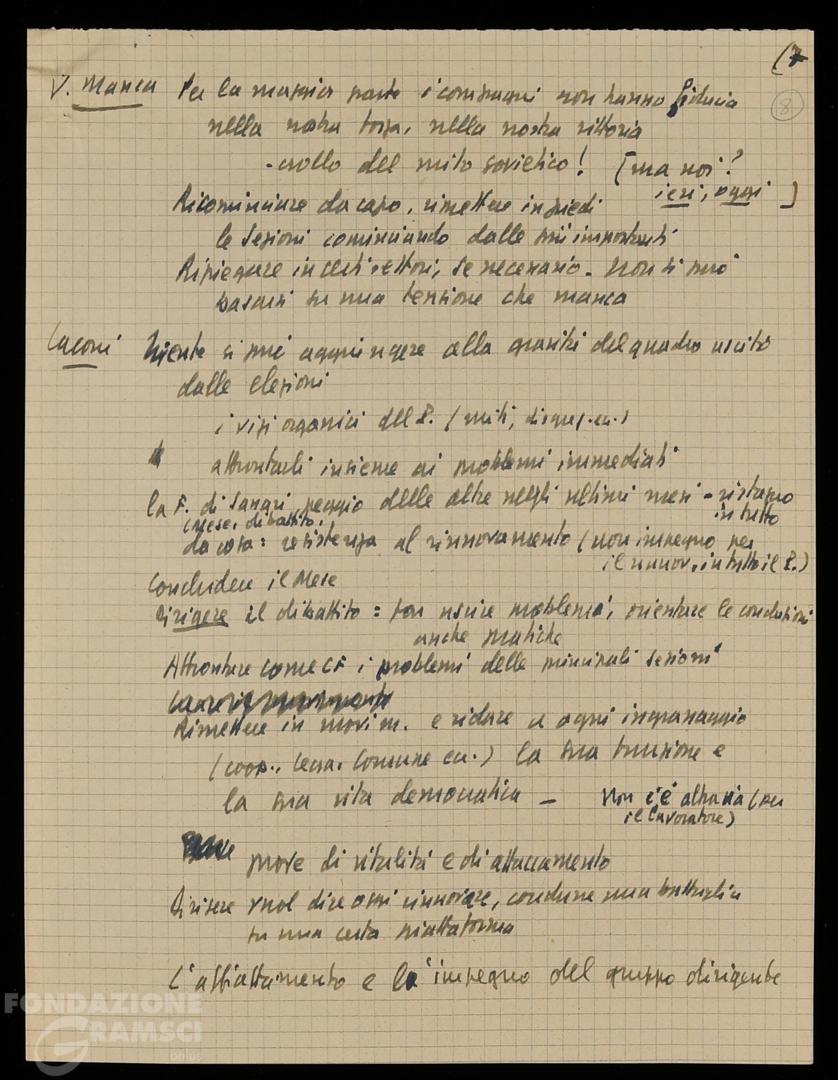 (7
8
V. Manca Per la maggior parte i compagni non hanno fiducia
nella nostra forza, nella nostra vittoria
- crollo del mito sovietico! [ma noi?
ieri, oggi]
Ricominciare da capo, rimettere in piedi
le Sezioni cominciando dalle più importanti
Ripiegare in certi settori, se necessario - Non si può
basarsi su una tensione che manca
Laconi Niente si può aggiungere alla gravità del quadro uscito
dalle elezioni
i vizi organici del P. (miti, ecc.)
affrontarli insieme ai problemi immediati
la F. di Sassari peggio delle altre negli ultimi mesi - ristagno
in tutto
(Mese, dibattito)
da cosa: resistenza al rinnovamento (non impegno per
il rinnov. in tutto il P.)
Concludere il Mese
Dirigere il dibattito = far uscire problemi, orientare le conclusioni
anche pratiche
Affrontare come CF i problemi delle principali sezioni
Rimettere in movim. e ridare a ogni ingranaggio
(coop., Lega, Comune ecc.) la sua funzione e
la sua vita democratica - Non c'è altra via (per
il lavoratore)
prove di vitalità e di attaccamento
Dirigere vuol dire oggi rinnovare, condurre una battaglia
su una certa piattaforma
L'affiatamento e l'impegno del gruppo dirigente
FONDAZIONE
GRAMSCI